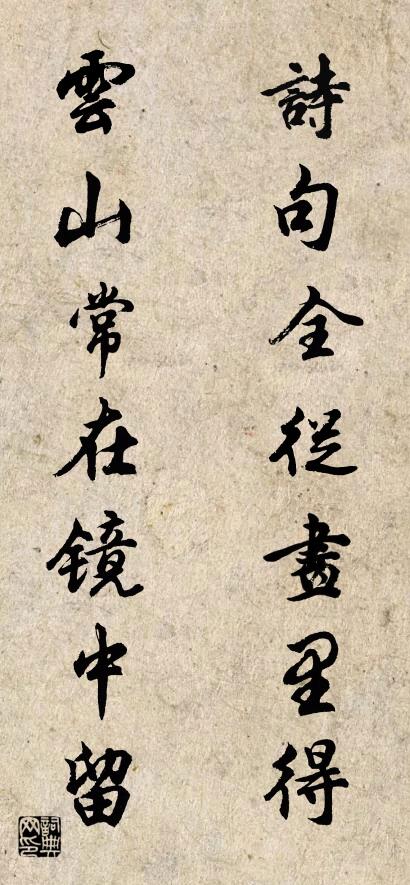 詩句全從畫里得
雲山常在鏡中留
詞典網印